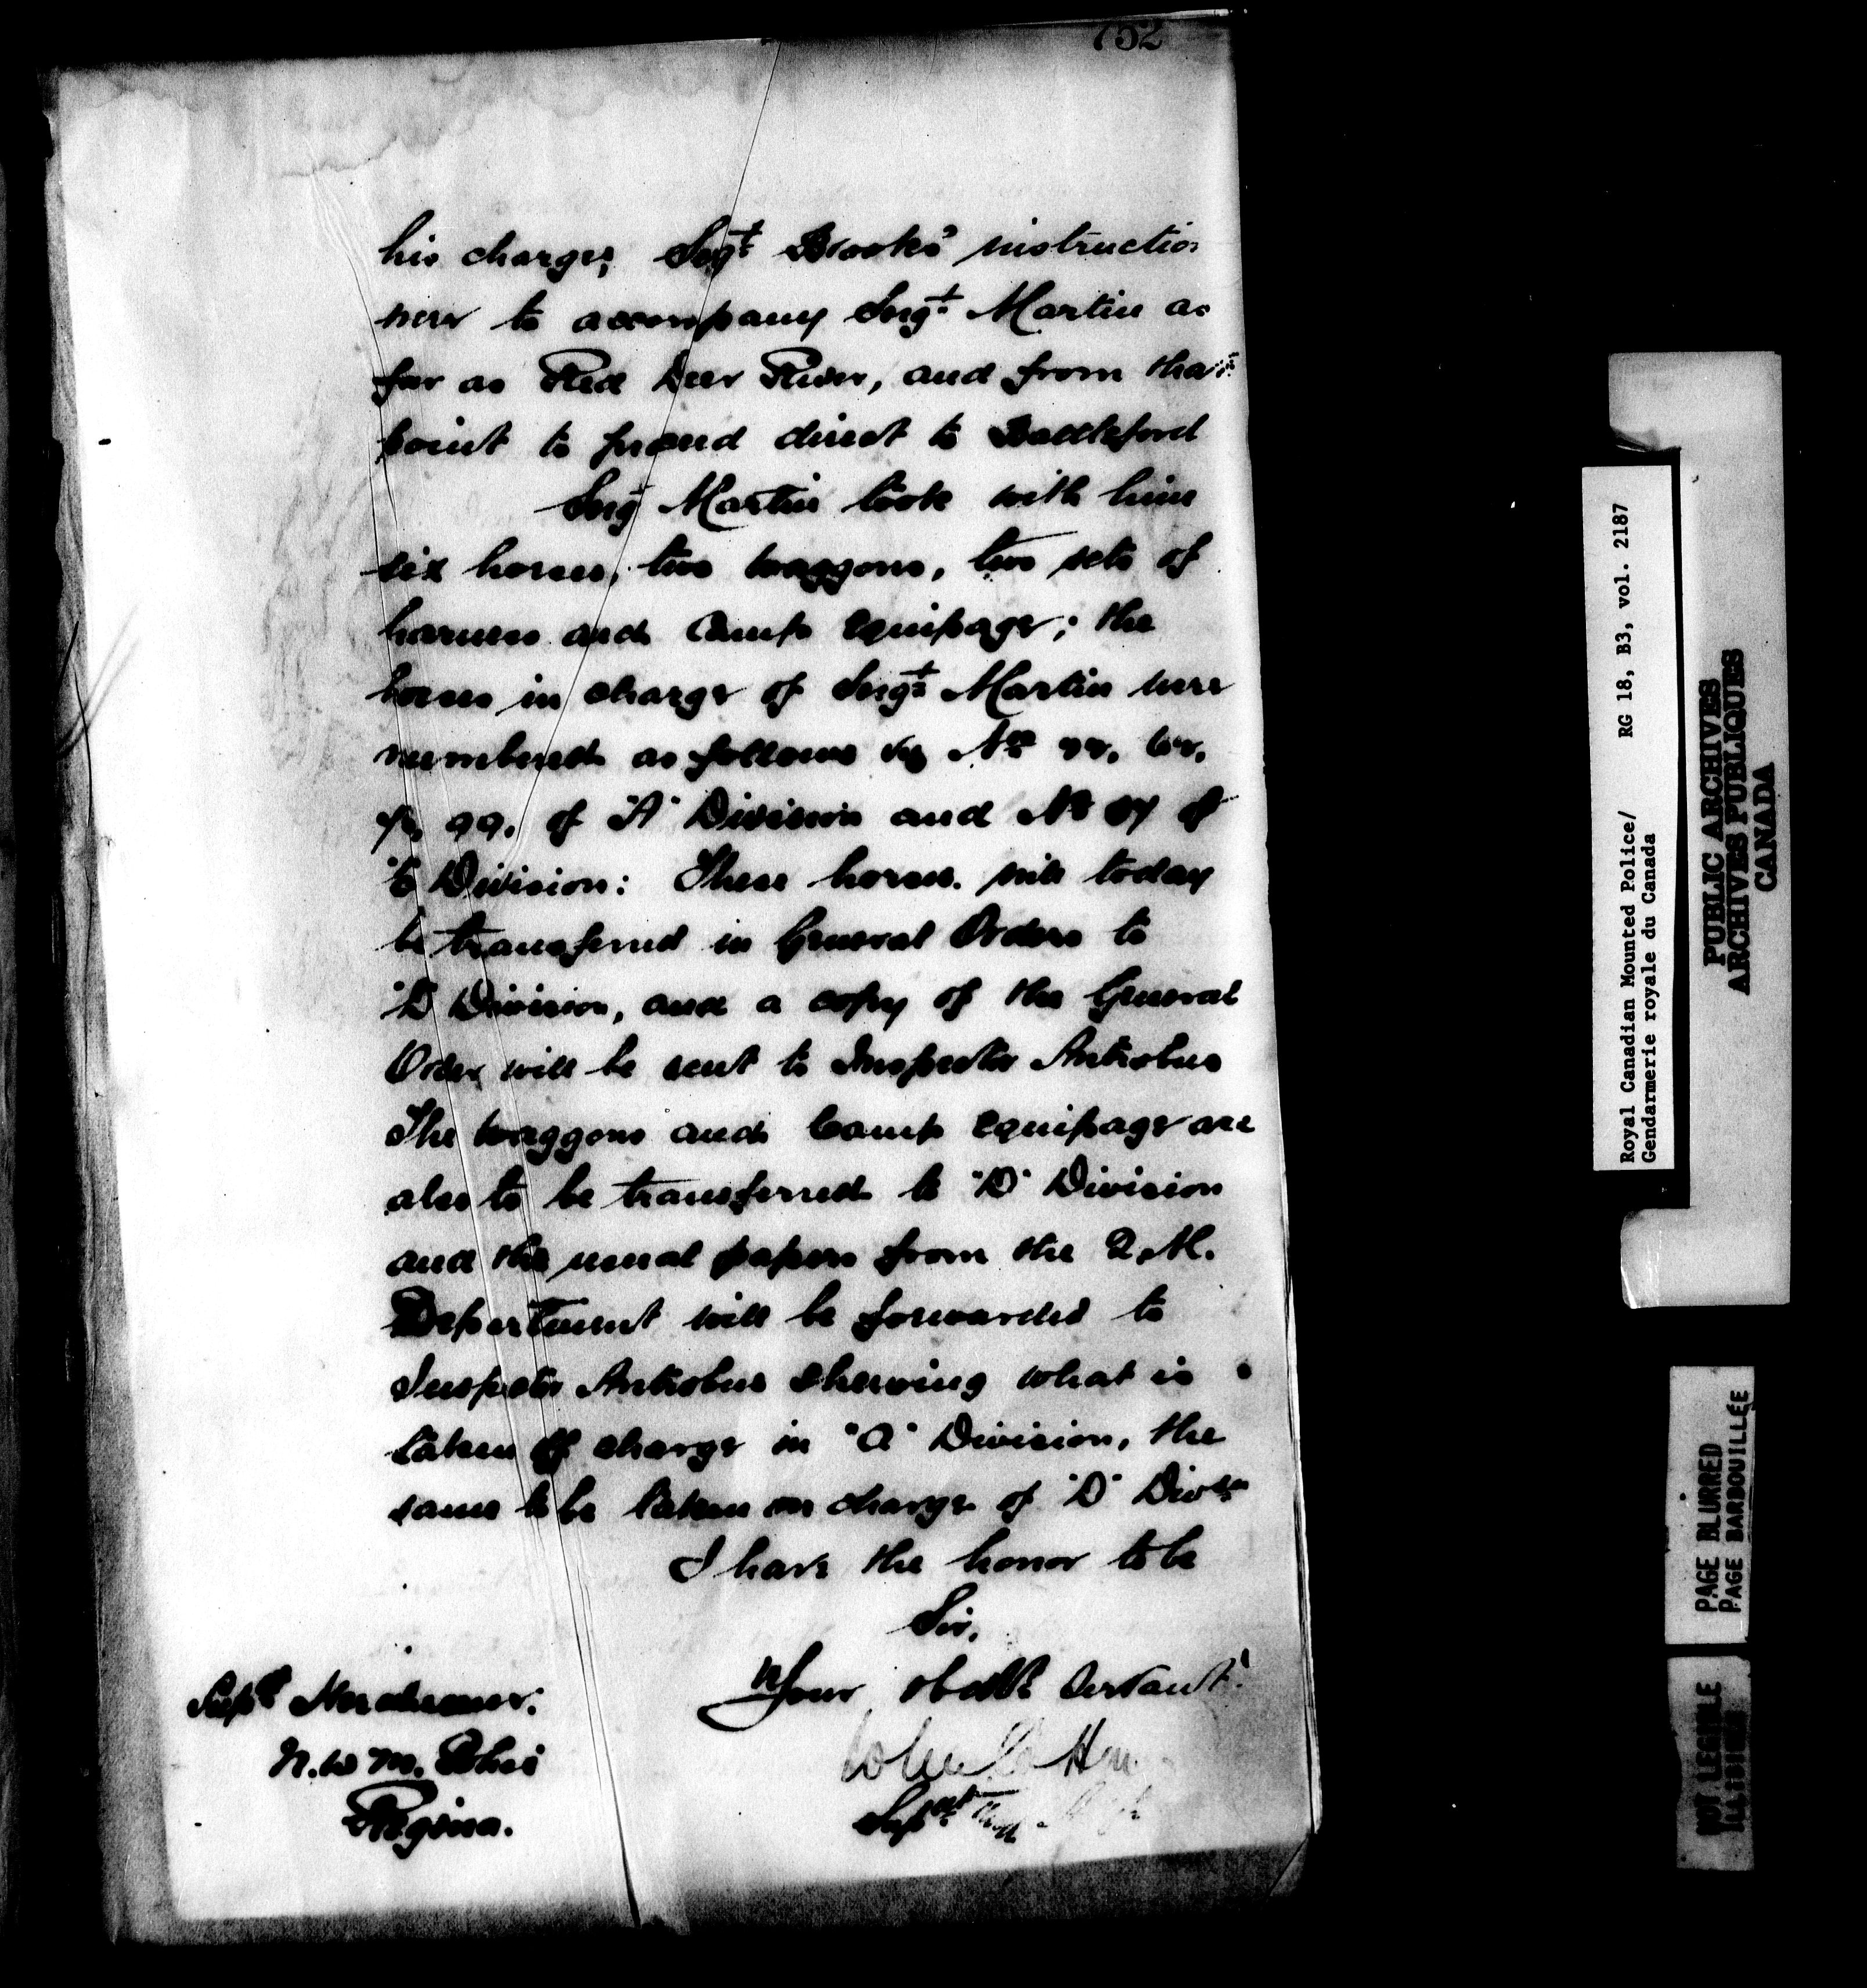 752
his charge, Sergt Brooks' instruction
were to accompany Sergt Martin as
far as Red Deer River, and from that
point to proceed direct to Battleford
Sergt Martin took with him
six horses, two waggons, two sets of
harness and Camp Equipage; the
horses in charge of Sergt Martin were
numbered as follows viz Nos
99. of "A" Division and No 37 of
"E" Division: These horses will today
be transferred in General Orders to
"D" Division, and a copy of the General
Order will be sent to Inspector Antrobus
The waggons and Camp Equipage are
also to be transferred to "D" Division
and the usual papers from the Q.M.
Department will be forwarded to
Inspector Antrobus shewing what is
taken off charge in "A" Division, the
same to be taken on charge of "D" Divisn
I have the honor to be
Sir,
Your obedt Servant
Supt Herchmer.
N.W.M. Police
Regina.
Supt
Royal Canadian Mounted Police/ RG 18, B3, vol. 2187
Gendarmerie royale du Canada
PUBLIC ARCHIVES
ARCHIVES PUBLIQUES
CANADA
PAGE BLURRED
PAGE BARBOUILLÉE
NOT LEGIBLE
ILLISIBLE